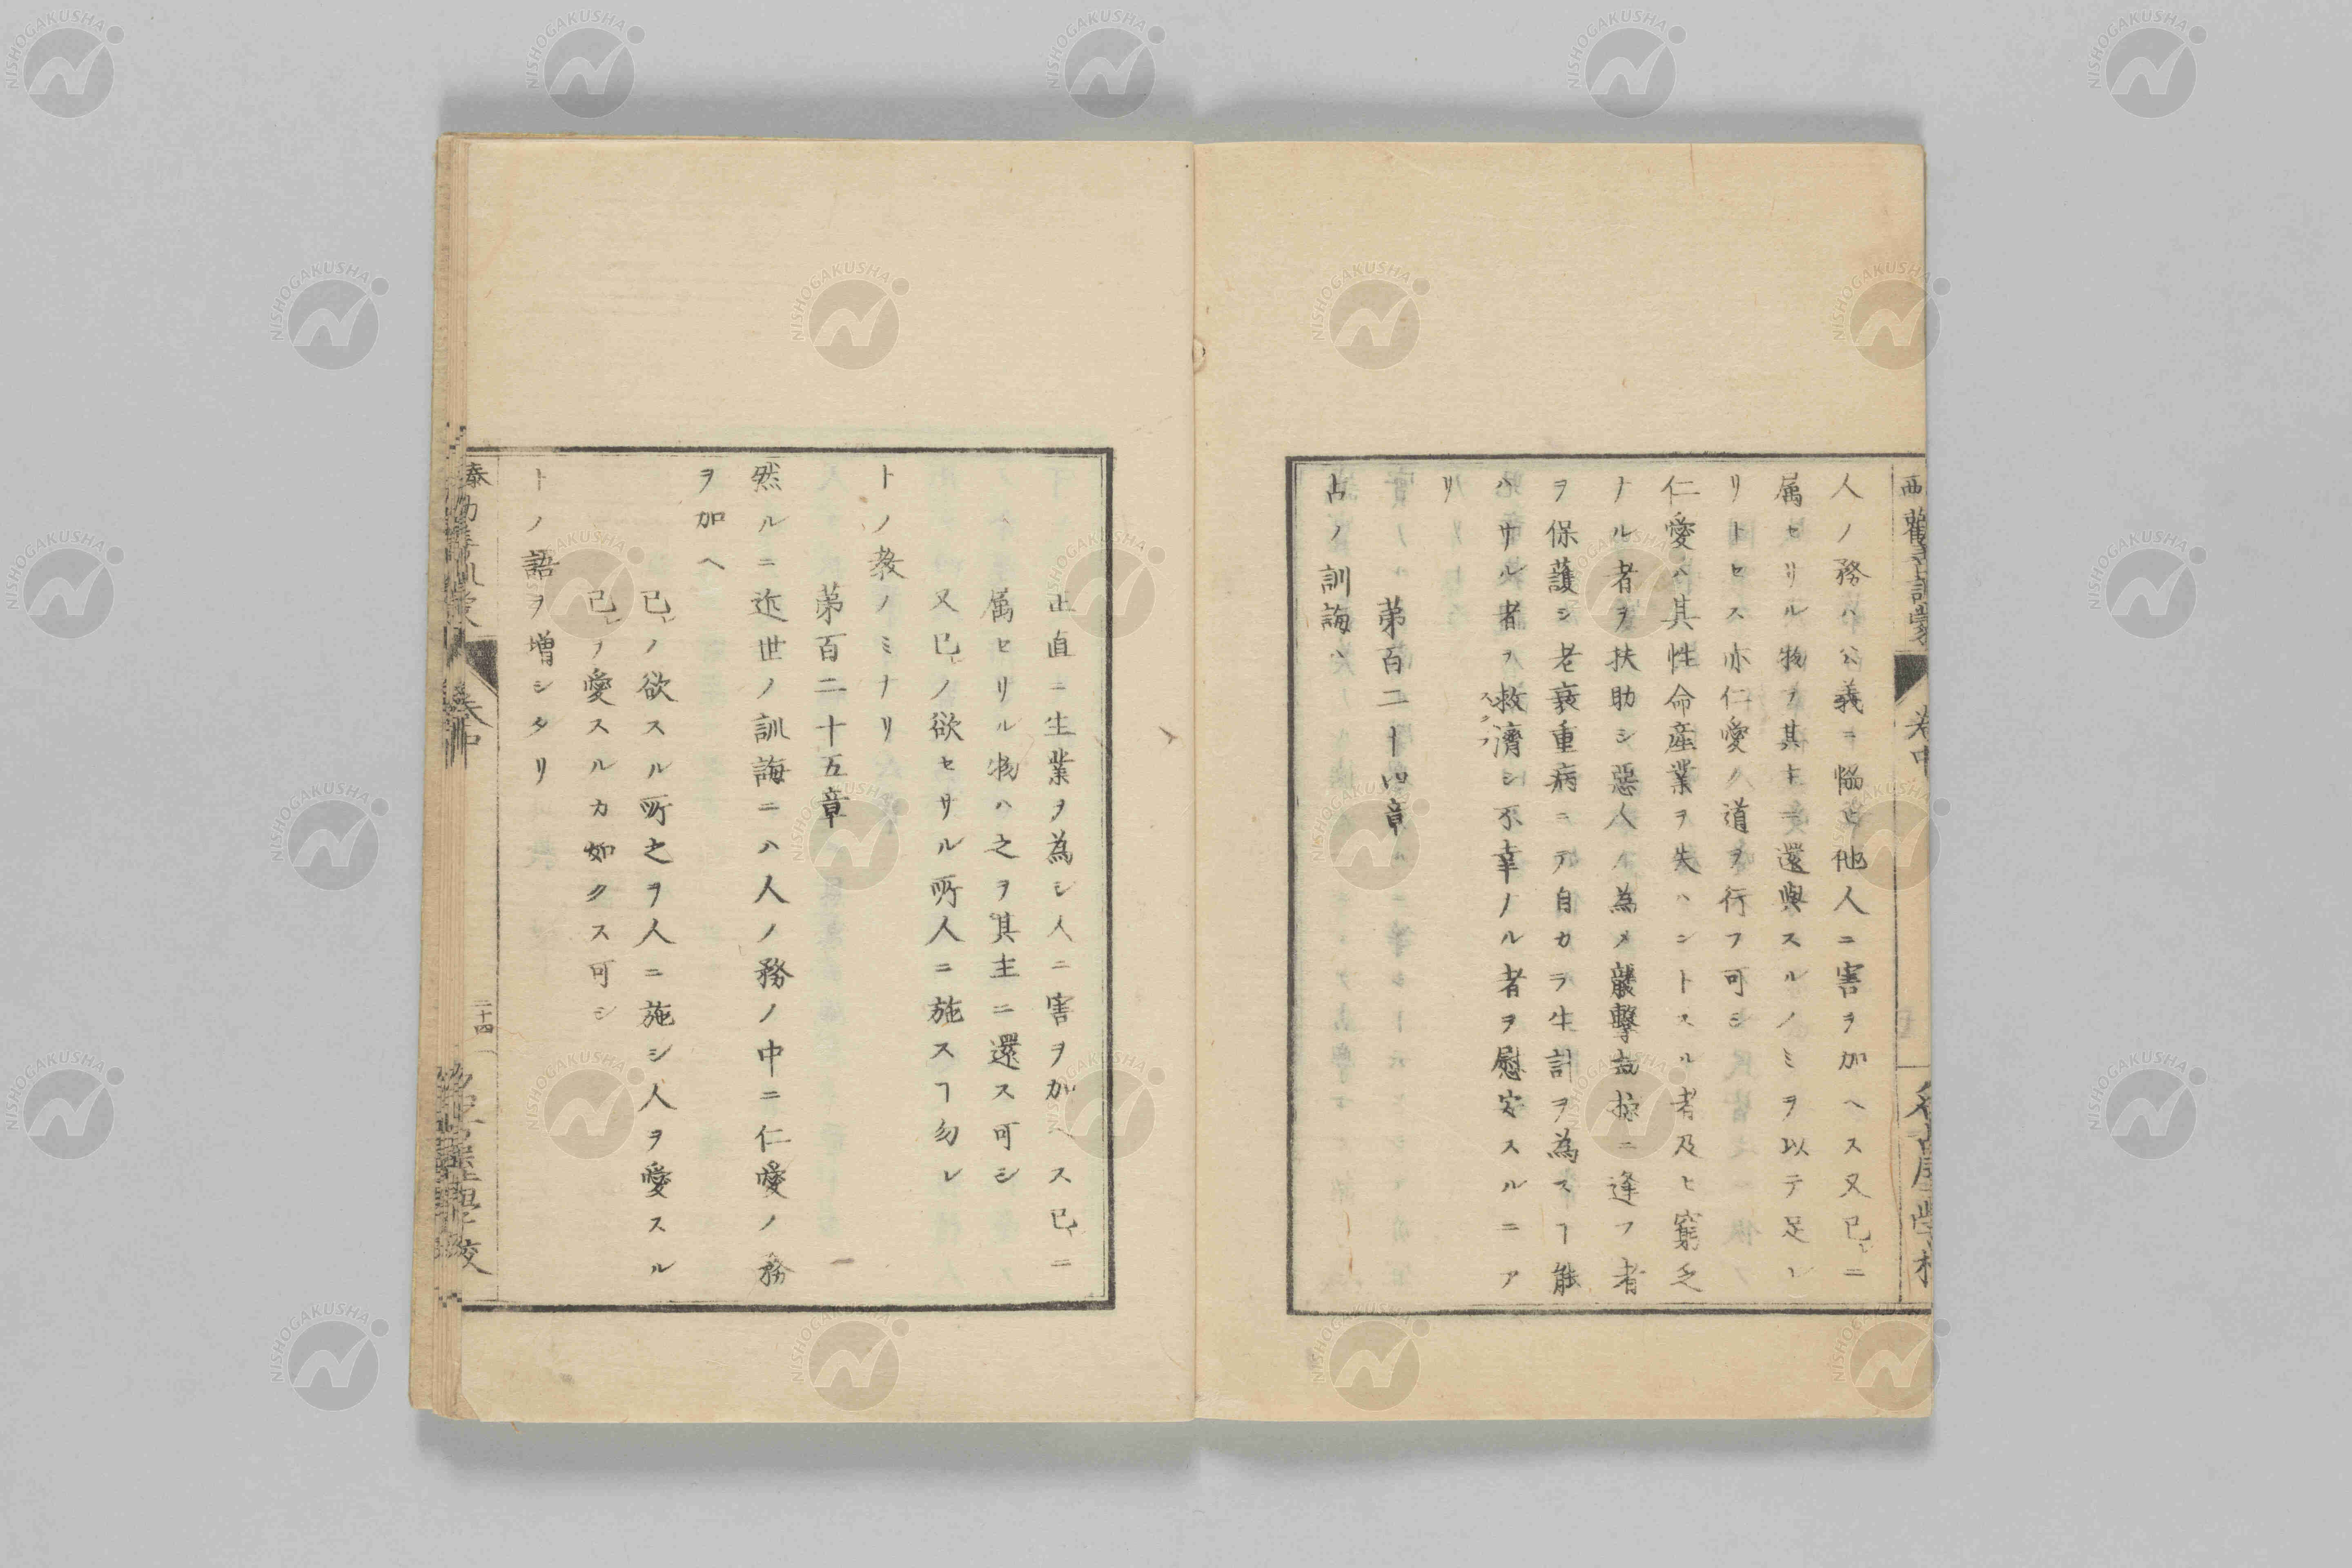 人ノ務ハ公義ニ恊ヒ他人ニ害ヲ加ヘス又已レニ
属セサル物ヲ其主ニ還與スルノミヲ以テ足レ
リトセス亦仁愛ノ道ヲ行フ可シ
仁愛ハ其性命産業ヲ失ハントスル者及ヒ窮乏
ナル者ヲ扶助シ惡人ノ為メ襲撃劫掠ニ逢フ者
ヲ保護シ老衰重病ニテ自カラ生計ヲ為スヿ能
ハサル者ヲ救濟シ不幸ノル者ヲ慰安スルニア
スクフ
リ
第百二十四章
古ノ訓誨ハ
正直ニ生業ヲ為シ人ニ害ヲ加ヘス已レニ
属セサル物ハ之ヲ其主ニ還ス可シ
又已レノ欲セサル所人ニ施スヿ勿レ
トノ教ノミナリ
第百二十五章
然ルニ近世ノ訓誨ニハ人ノ務ノ中ニ仁愛ノ務
ヲ加ヘ
已レノ欲スル所之ヲ人ニ施シ人ヲ愛スル
已レヲ愛スルカ如クス可シ
トノ語ヲ増シタリ
卷中
二十四